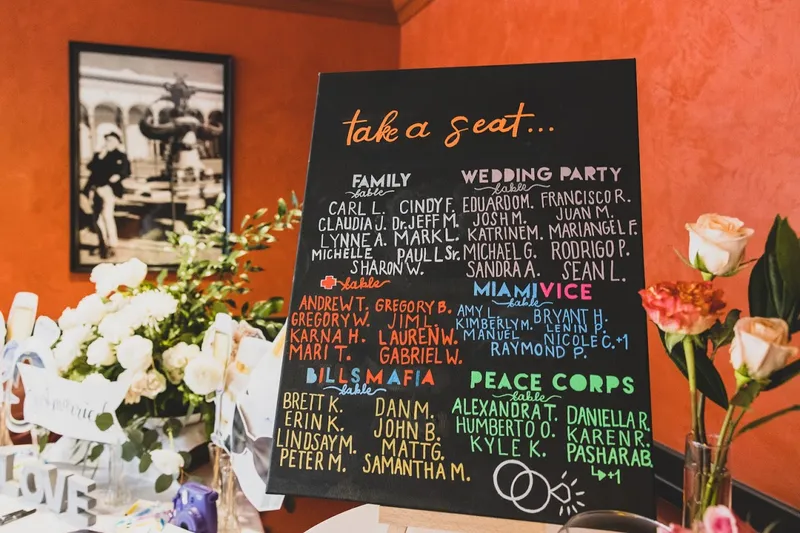 take a seat...
FAMILY
table
CARL L. CINDY F.
CLAUDIA J. Dr. JEFF M.
LYNNE A. MARK L.
MICHELLE PAUL L Sr.
SHARON W.
WEDDING PARTY
table
EDUARDO M. FRANCISCO R.
JOSH M. JUAN M.
KATRINE M. MARIANGEL F.
MICHAEL G. RODRIGO P.
SANDRA A. SEAN L.
table
ANDREW T. GREGORY B.
GREGORY W. JIM L.
KARNA H. LAUREN W.
MARI T. GABRIEL W.
MIAMI VICE
table
AMY L. BRYANT H.
KIMBERLY M. LENIN P.
MANUEL NICOLE C. +1
RAYMOND P.
BILLS MAFIA
table
BRETT K. DAN M.
ERIN K. JOHN B.
LINDSAY M. MATT G.
PETER M. SAMANTHA M.
PEACE CORPS
table
ALEXANDRA T. DANIELLA R.
HUMBERTO O. KAREN R.
KYLE K. PASHA RAB.
+1
married
LOVE